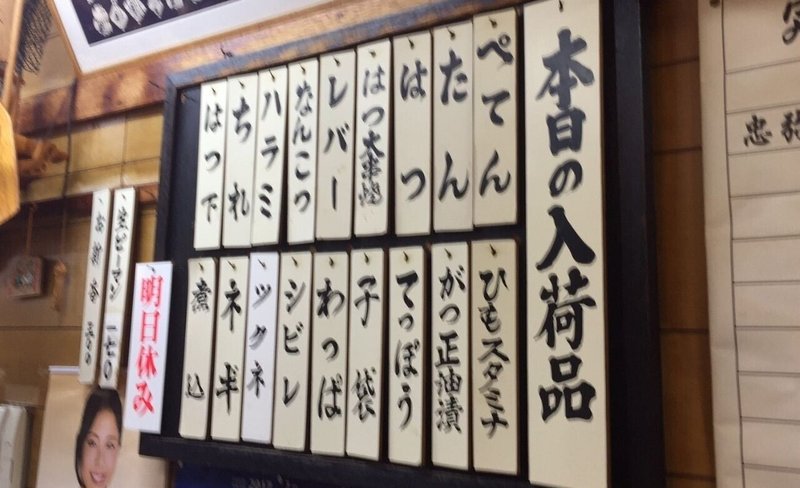 本日の入荷品
ぺてん
たん
はつ
はつ大動脈
レバー
なんこつ
ハラミ
ちれ
はつ下
ひもスタミナ
がつ正油漬
てっぽう
子袋
わっぱ
シビレ
ツクネ
ネギ
煮込
明日休み
生ピーマン 一七〇
お新香 三〇〇